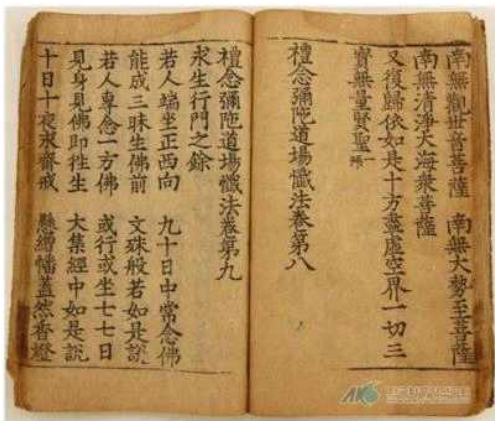 南無觀世音菩薩　南無大勢至菩薩
南無清淨大海衆菩薩
又復歸依如是十方盡虛空界一切三
寶無量賢聖一拜
禮念彌陀道場懺法卷第八
禮念彌陀道場懺法卷第九
求生行門之餘
若人端坐正西向　九十日中常念佛
能成三昧生佛前　文殊般若如是說
若人專念一方佛　或行或坐七七日
見身見佛即往生　大集經中如是說
十日十夜求齋戒　懸繒幡蓋然香燈